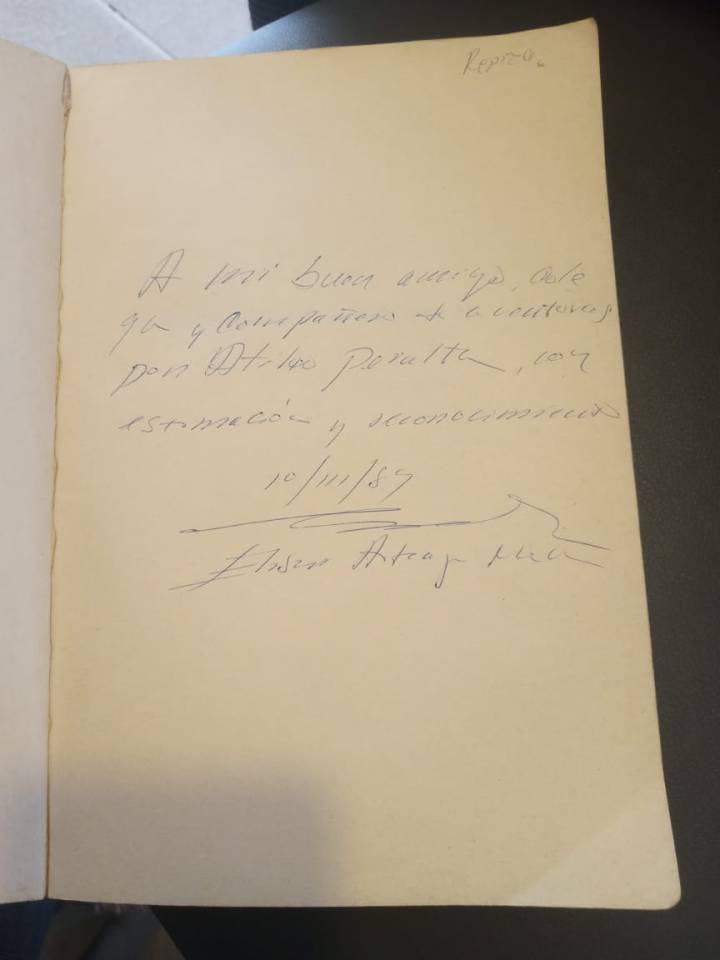 A mi buen amigo, cole
ga y compañero de aventuras
don Atilio Peralta, con
estimación y reconocimiento
10/III/89
Elisur Arteaga